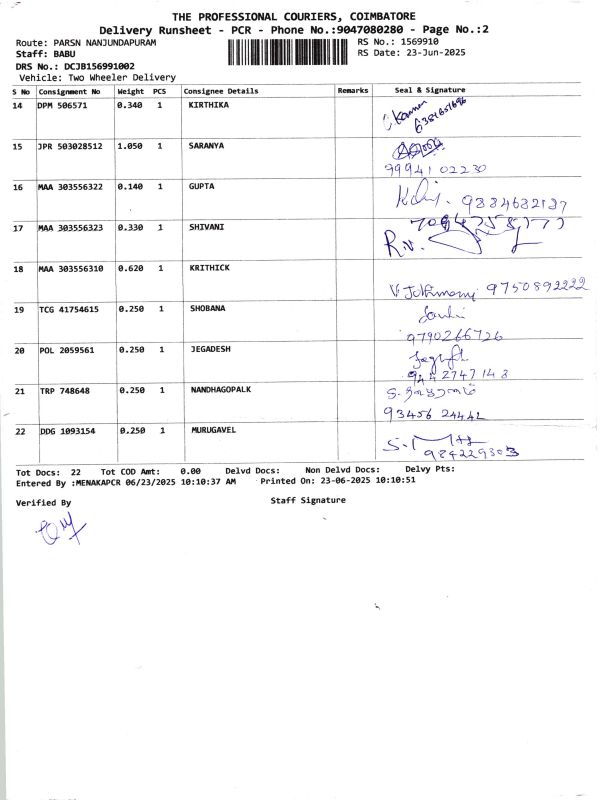 THE PROFESSIONAL COURIERS, COIMBATORE
Delivery Runsheet - PCR - Phone No.:9047080280 - Page No.:2
Route: PARSN NANJUNDAPURAM
RS No.: 1569910
Staff: BABU
RS Date: 23-Jun-2025
DRS No.: DCJB156991002
Vehicle: Two Wheeler Delivery
S No Consignment No Weight PCS Consignee Details Remarks Seal & Signature
14 DPM 506571 0.340 1 KIRTHIKA
15 JPR 503028512 1.050 1 SARANYA
99941 02230
16 MAA 303556322 0.140 1 GUPTA
9884682187
17 MAA 303556323 0.330 1 SHIVANI
R.N.
18 MAA 303556310 0.620 1 KRITHICK
9750892222
19 TCG 41754615 0.250 1 SHOBANA
9790266726
20 POL 2059561 0.250 1 JEGADESH
9442747148
21 TRP 748648 0.250 1 NANDHAGOPALK
93456 24442
22 DDG 1093154 0.250 1 MURUGAVEL
9842229303
Tot Docs: 22 Tot COD Amt: 0.00 Delvd Docs: Non Delvd Docs: Delvy Pts:
Entered By :MENAKAPCR 06/23/2025 10:10:37 AM Printed On: 23-06-2025 10:10:51
Verified By Staff Signature